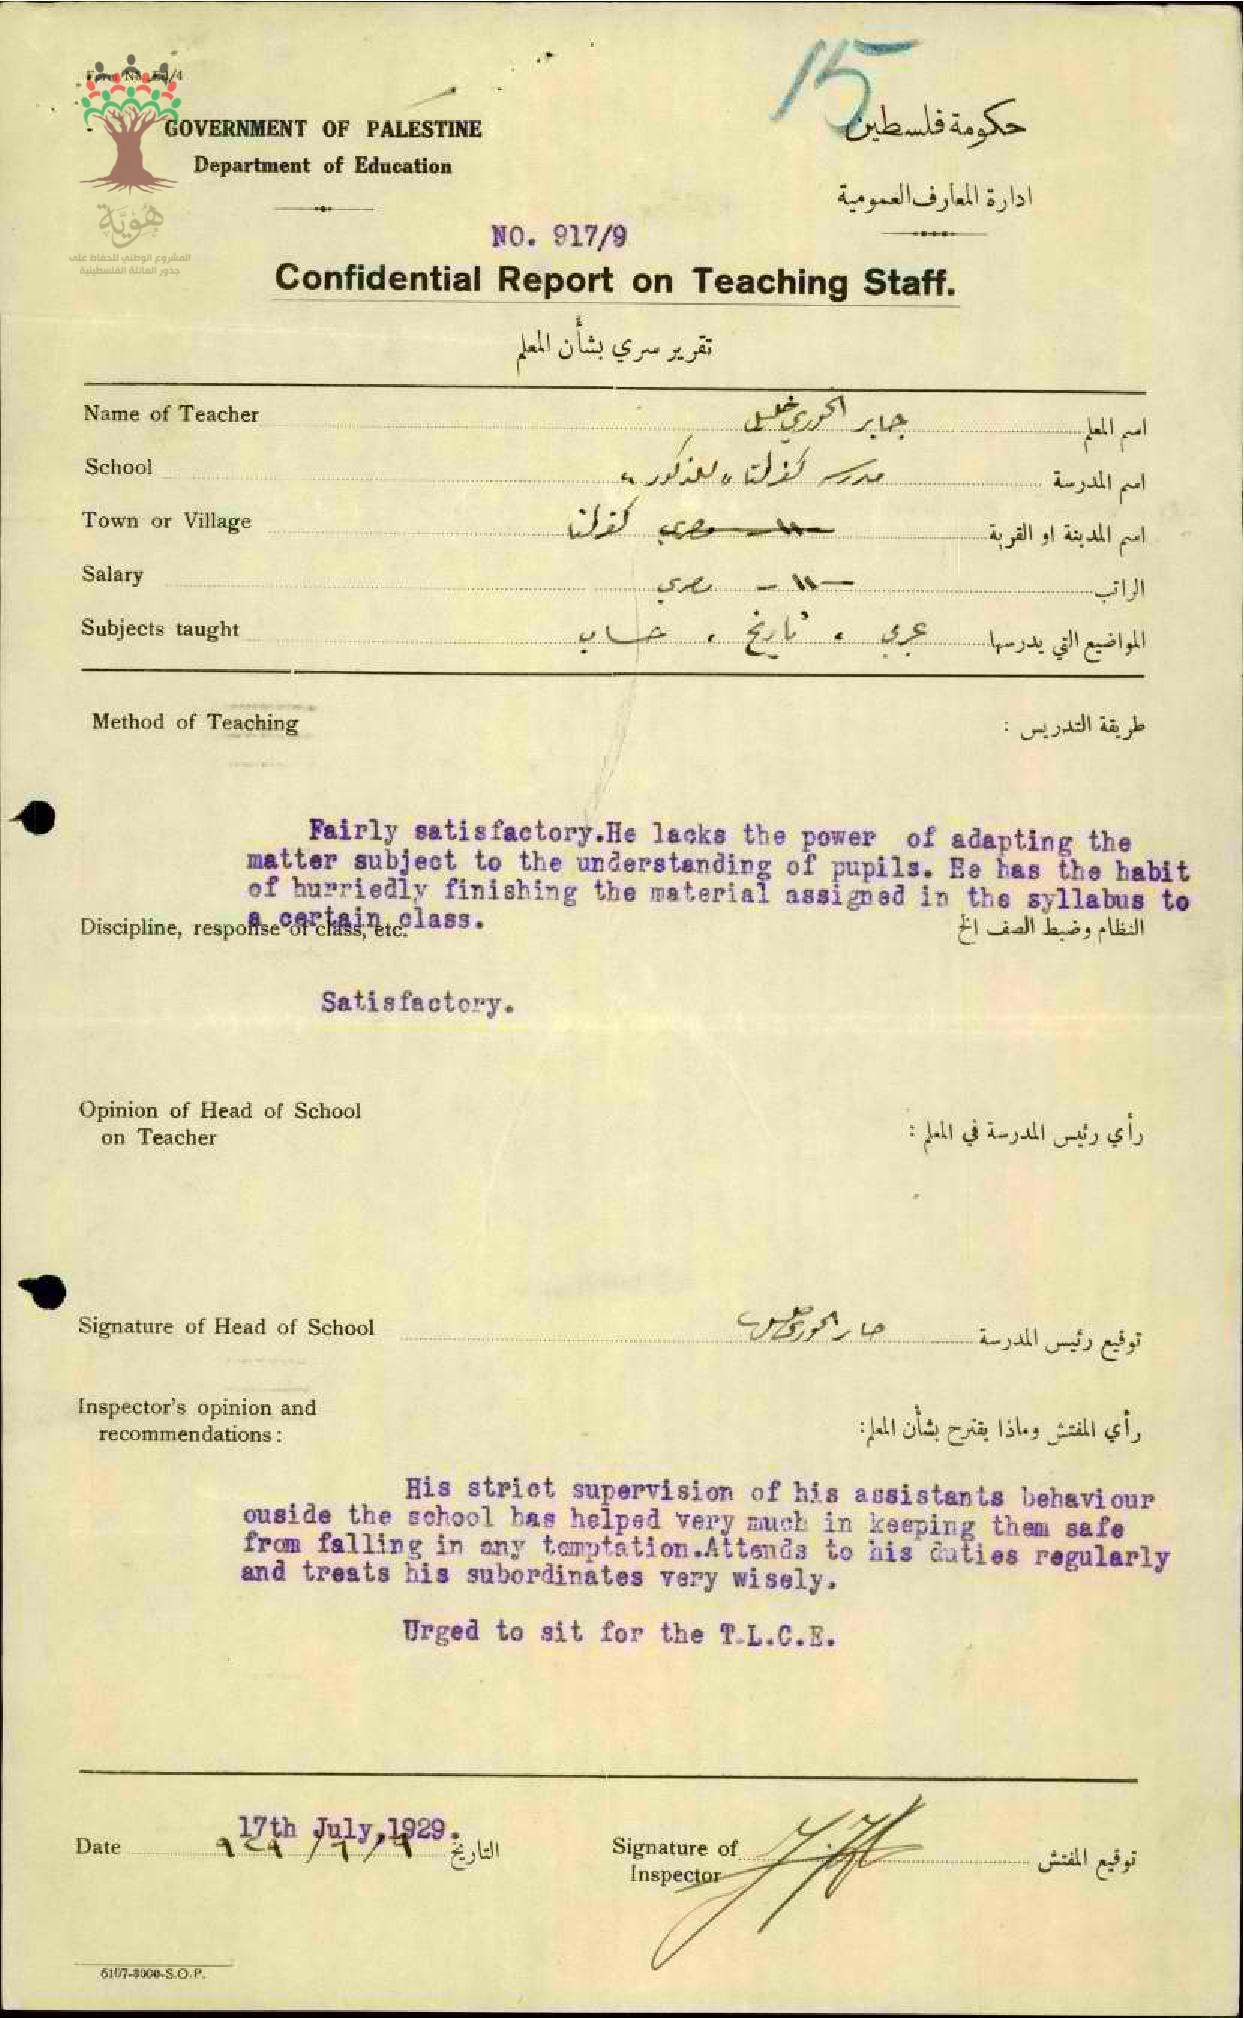 15
Form No. Ed/4
GOVERNMENT OF PALESTINE
Department of Education
حكومة فلسطين
ادارة المعارف العمومية
هُوِيَّة
المشروع الوطني للحفاظ على
جذور العائلة الفلسطينية
NO. 917/9
Confidential Report on Teaching Staff.
تقرير سري بشأن المعلم
Name of Teacher جابر الخوري خليل اسم المعلم
School مدرسة للذكور اسم المدرسة
Town or Village اسم المدينة او القرية
Salary — ١١ - مصري الراتب
Subjects taught عربي ، تاريخ ، حساب المواضيع التي يدرسها
Method of Teaching طريقة التدريس :
Fairly satisfactory.He lacks the power of adapting the
matter subject to the understanding of pupils. He has the habit
of hurriedly finishing the material assigned in the syllabus to
a certain class.
Discipline, response of class, etc. النظام وضبط الصف الخ
Satisfactory.
Opinion of Head of School
on Teacher
رأي رئيس المدرسة في المعلم :
Signature of Head of School جابر الخوري توقيع رئيس المدرسة
Inspector's opinion and
recommendations:
رأي المفتش وماذا يقترح بشأن المعلم:
His strict supervision of his assistants behaviour
ouside the school has helped very much in keeping them safe
from falling in any temptation.Attends to his duties regularly
and treats his subordinates very wisely.
Urged to sit for the T.L.C.E.
17th July,1929.
Date التاريخ
Signature of
Inspector
توقيع المفتش
6107-8000-S.O.P.